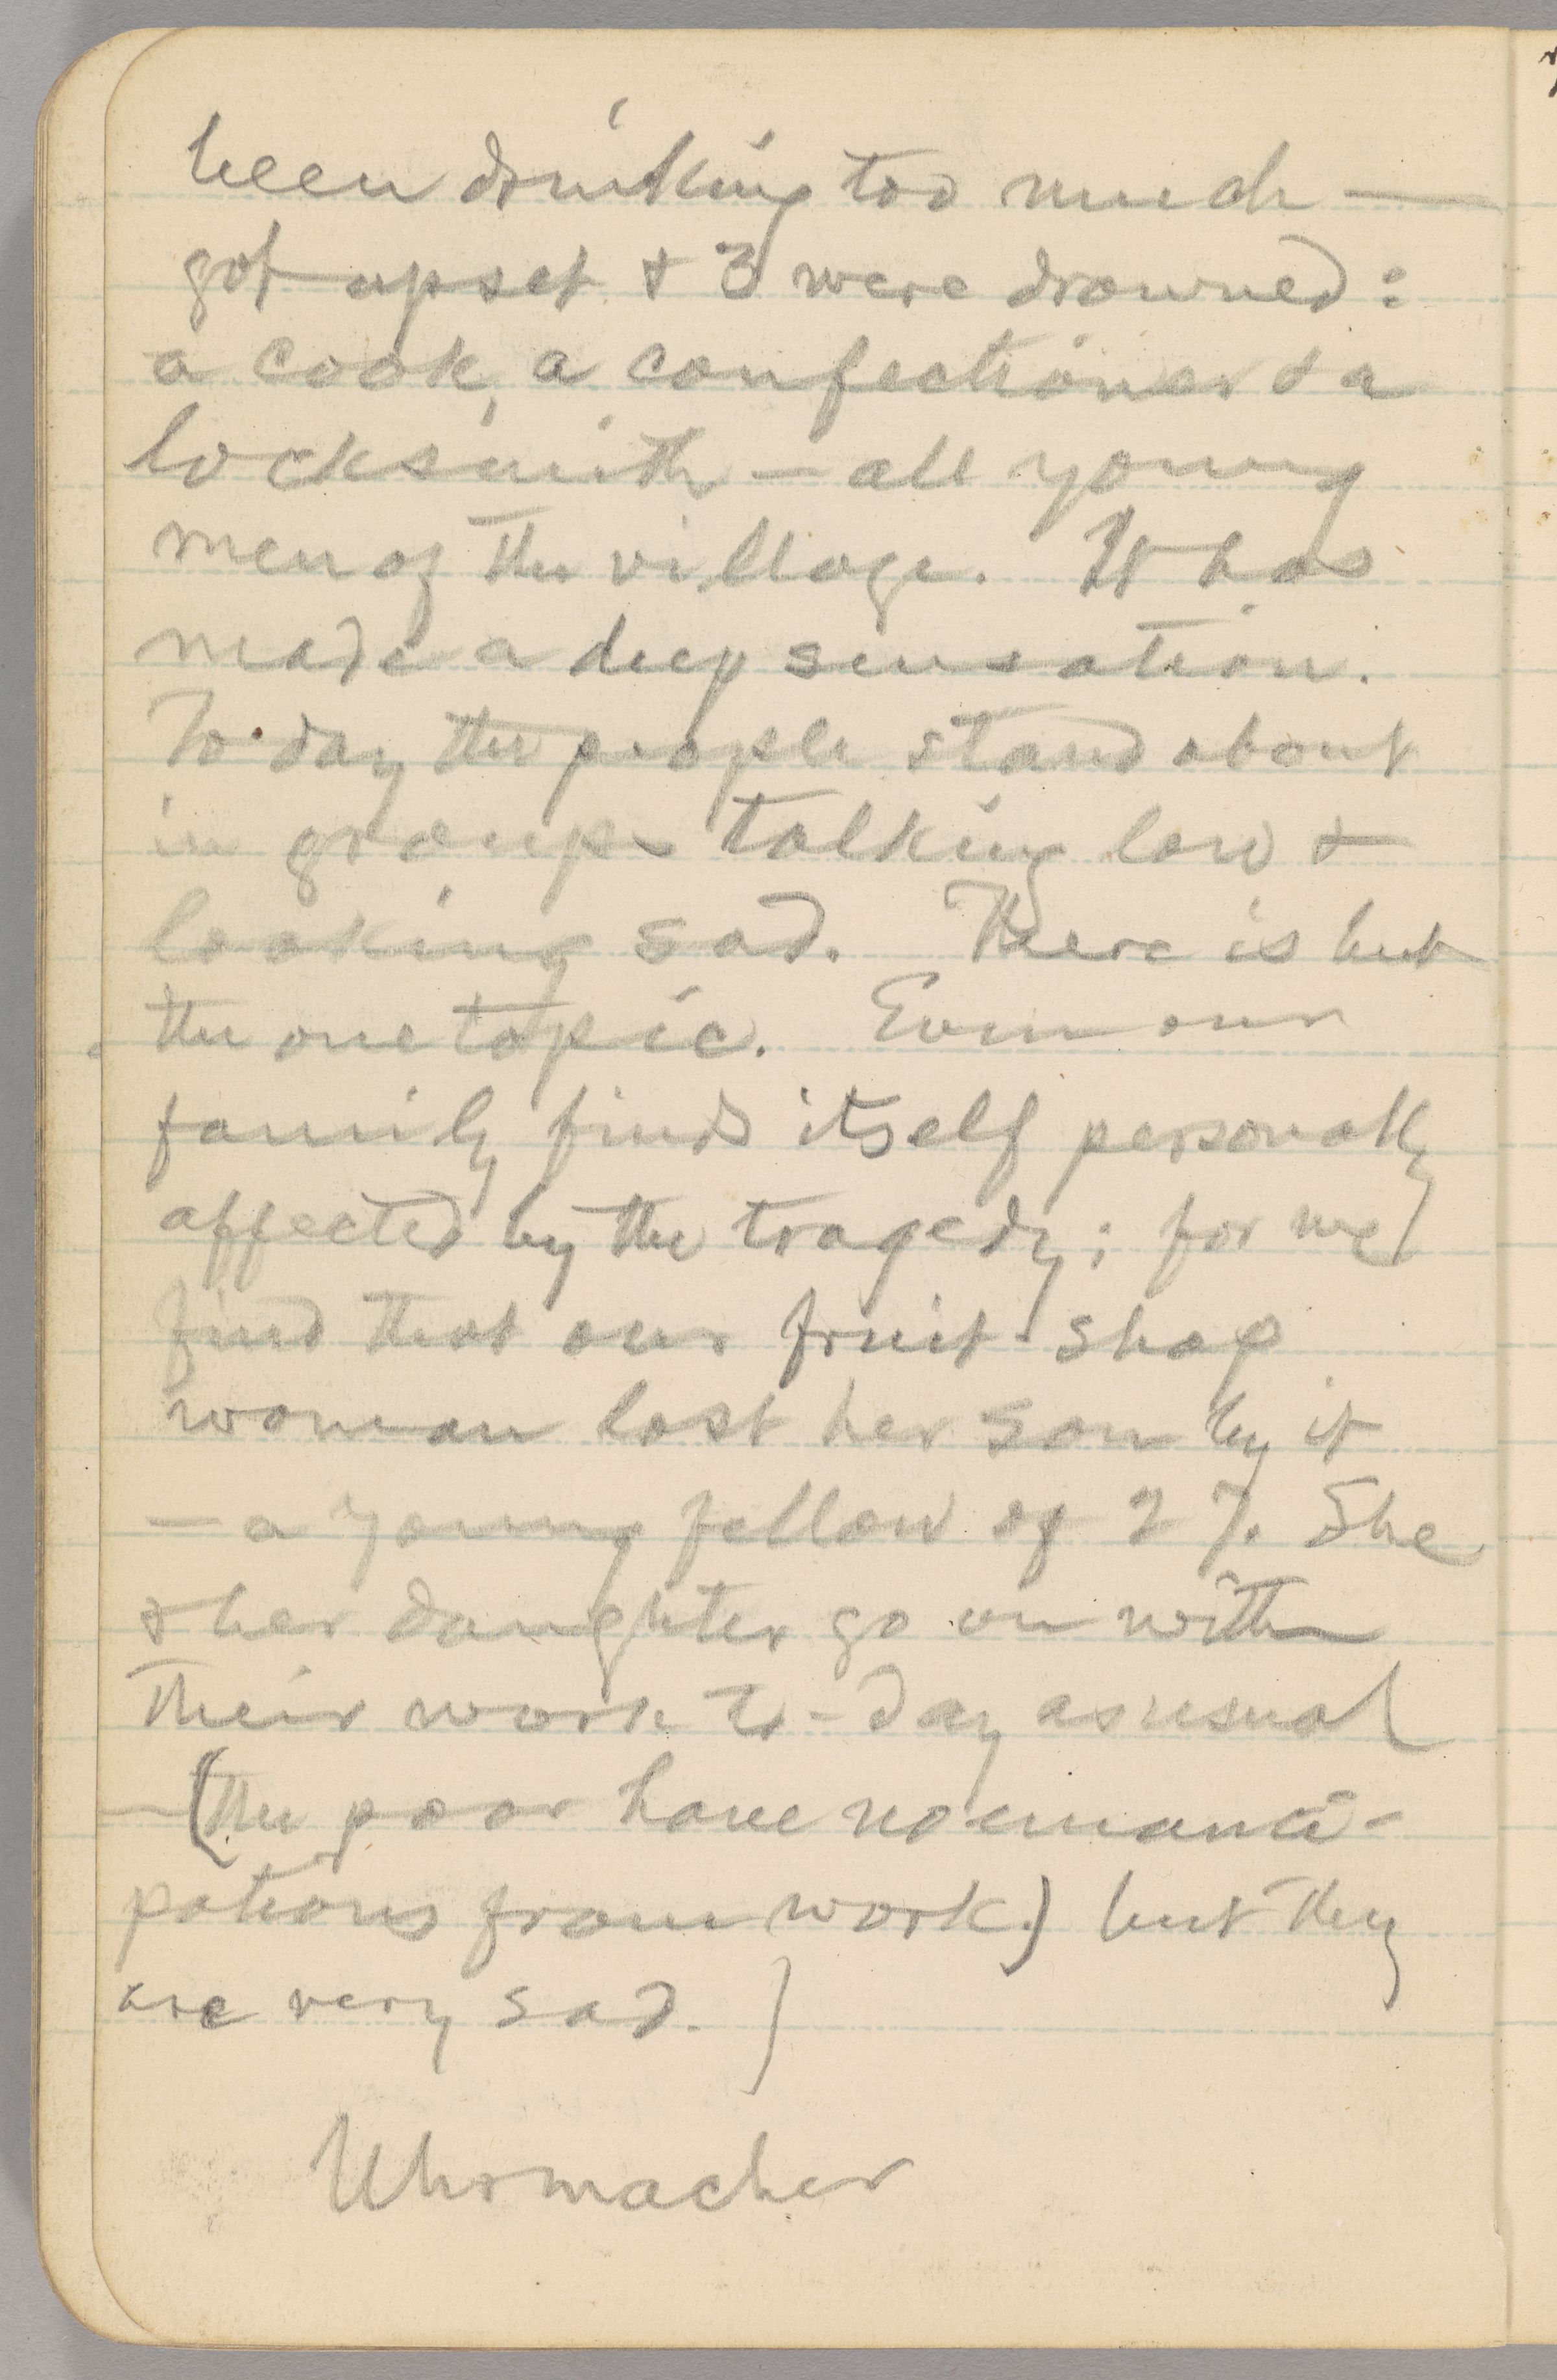 been drinking too much —
got upset & 3 were drowned:
a cook, a confectioner & a
locksmith — all young
men of the village. It has
made a deep sensation.
To-day the people stand about
in groups talking low &
looking sad. There is but
the one topic. Even our
family finds itself personally
affected by the tragedy; for we
find that our fruit-shop
woman lost her son by it
— a young fellow of 27. She
& her daughter go on with
their work to-day as usual
— (the poor have no emanci-
pations from work.) but they
are very sad. )
Uhrmacher